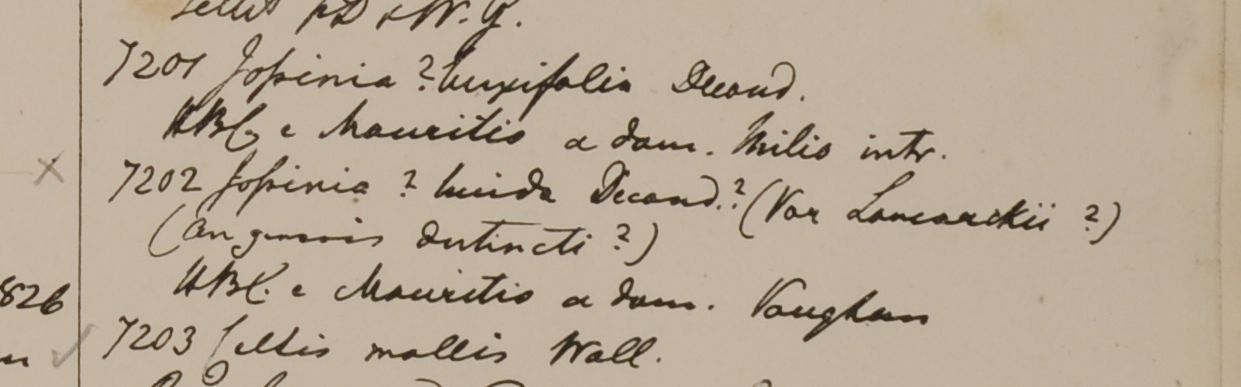 Celtis pD & W. G.
7201 Jossinia ? buxifolia Decand.
HBC. e Mauritio a dom. Milio intr.
X 7202 Jossinia ? lucida Decand.? (Var Lamarckii ?)
(An generis distincti ?)
826 HBC. e Mauritio a dom. Vaughan
7203 Celtis mollis Wall.